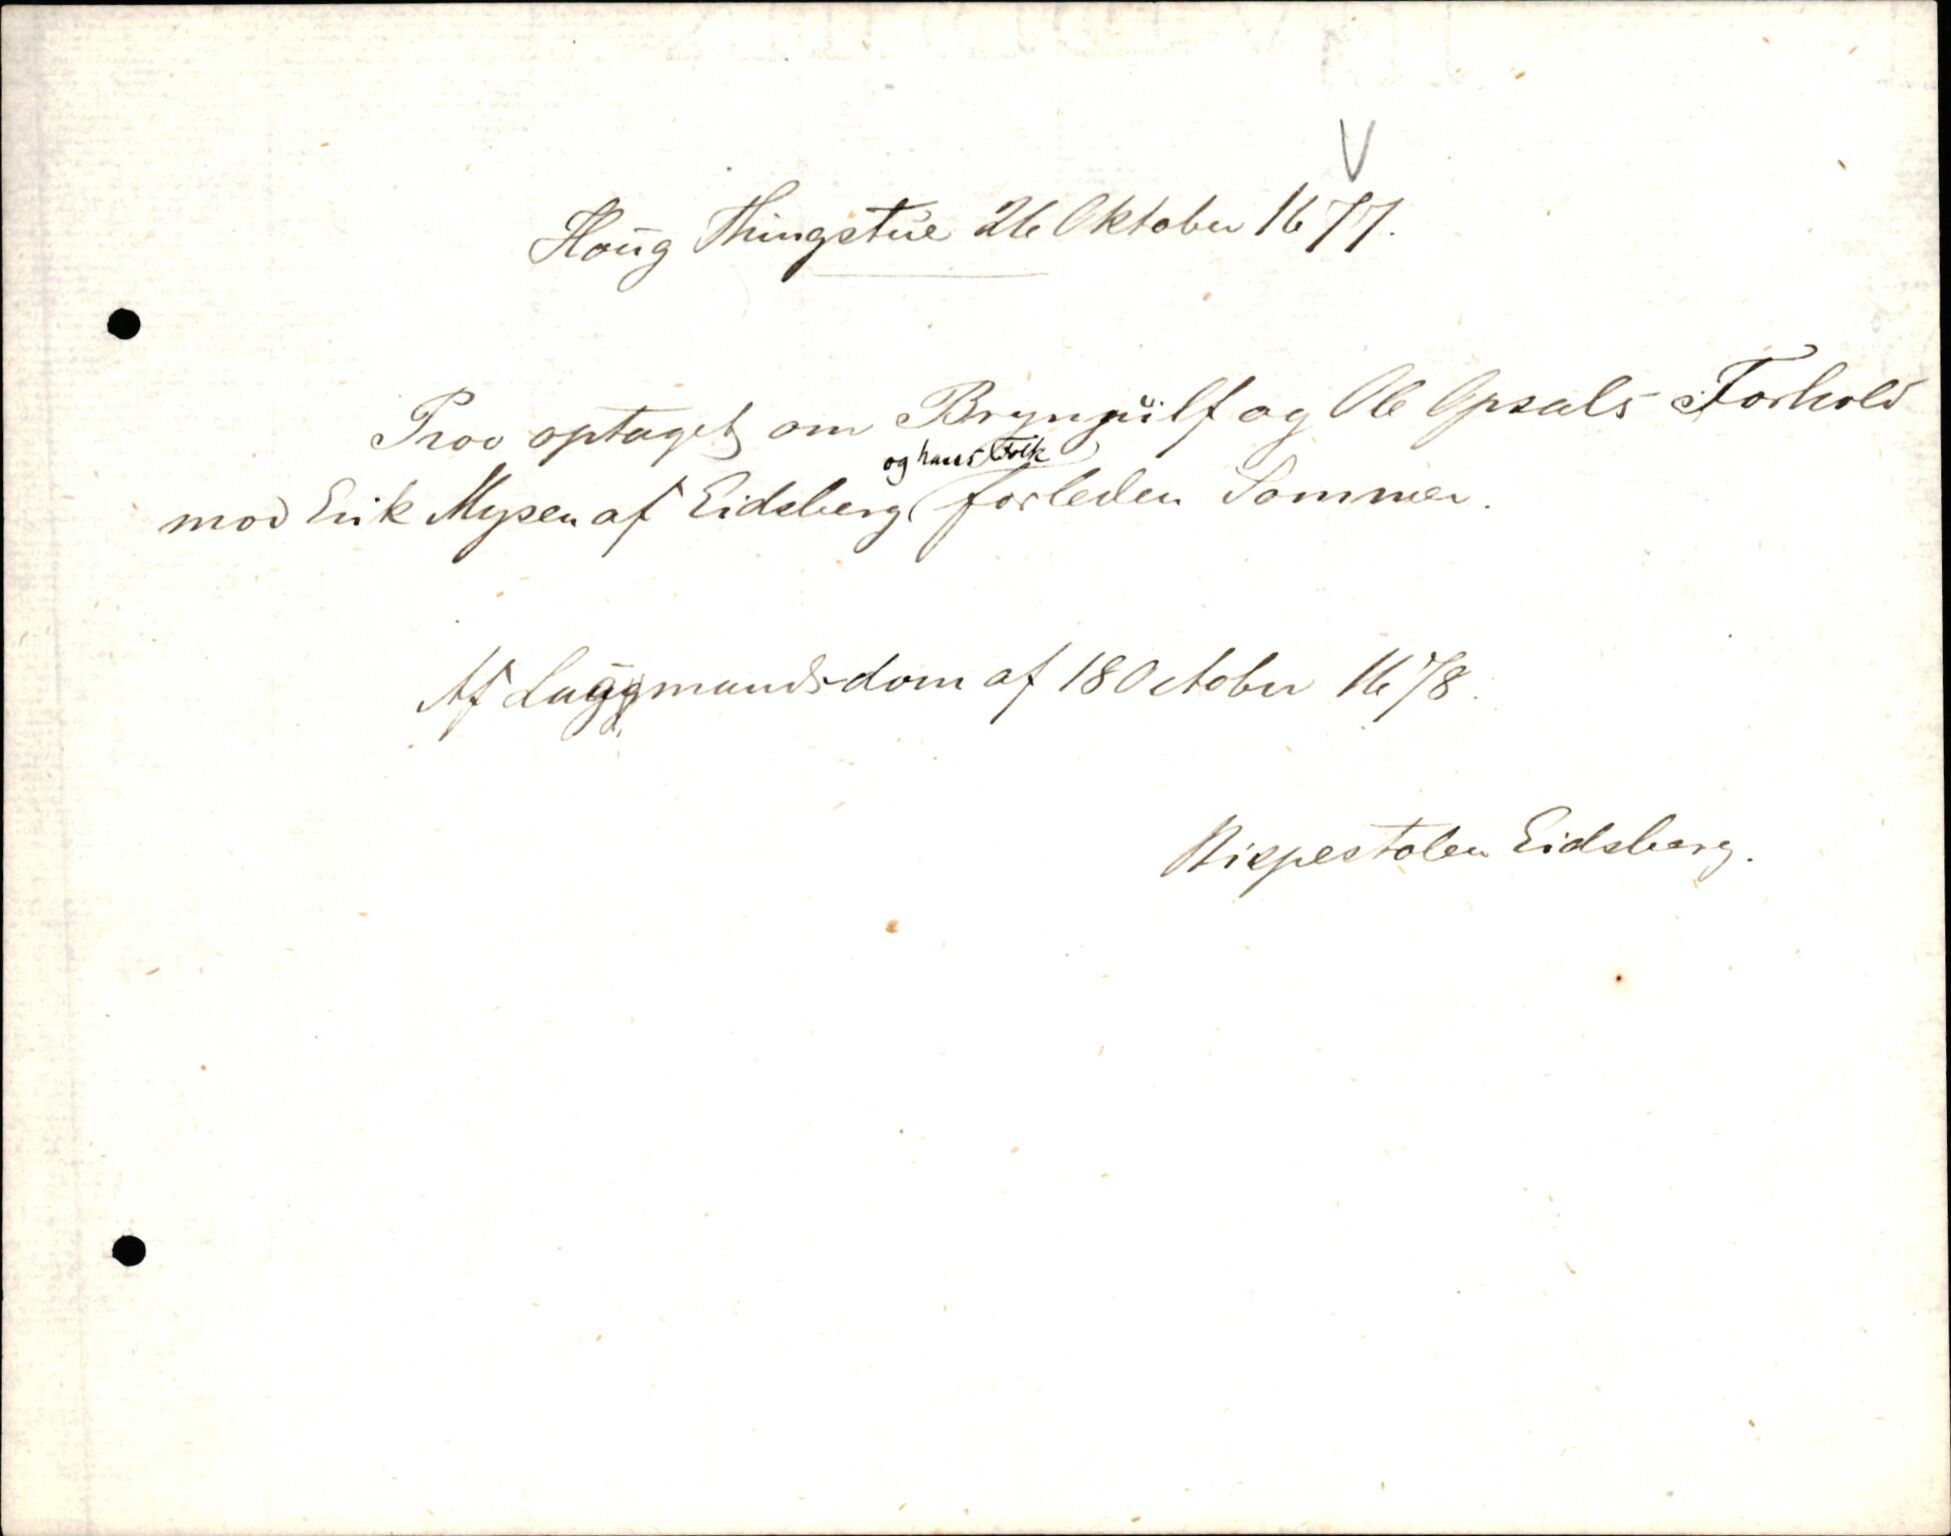 V
Houg Thingstue 26 Oktober 1677.
Prov optaget om Brynjulf og Ole Opsals Forhold
og hans Folk
mod Erik Mysen af Eidsberg forleden Sommer.
Af Laugmandsdom af 18 October 1678.
Bispestolen Eidsberg.